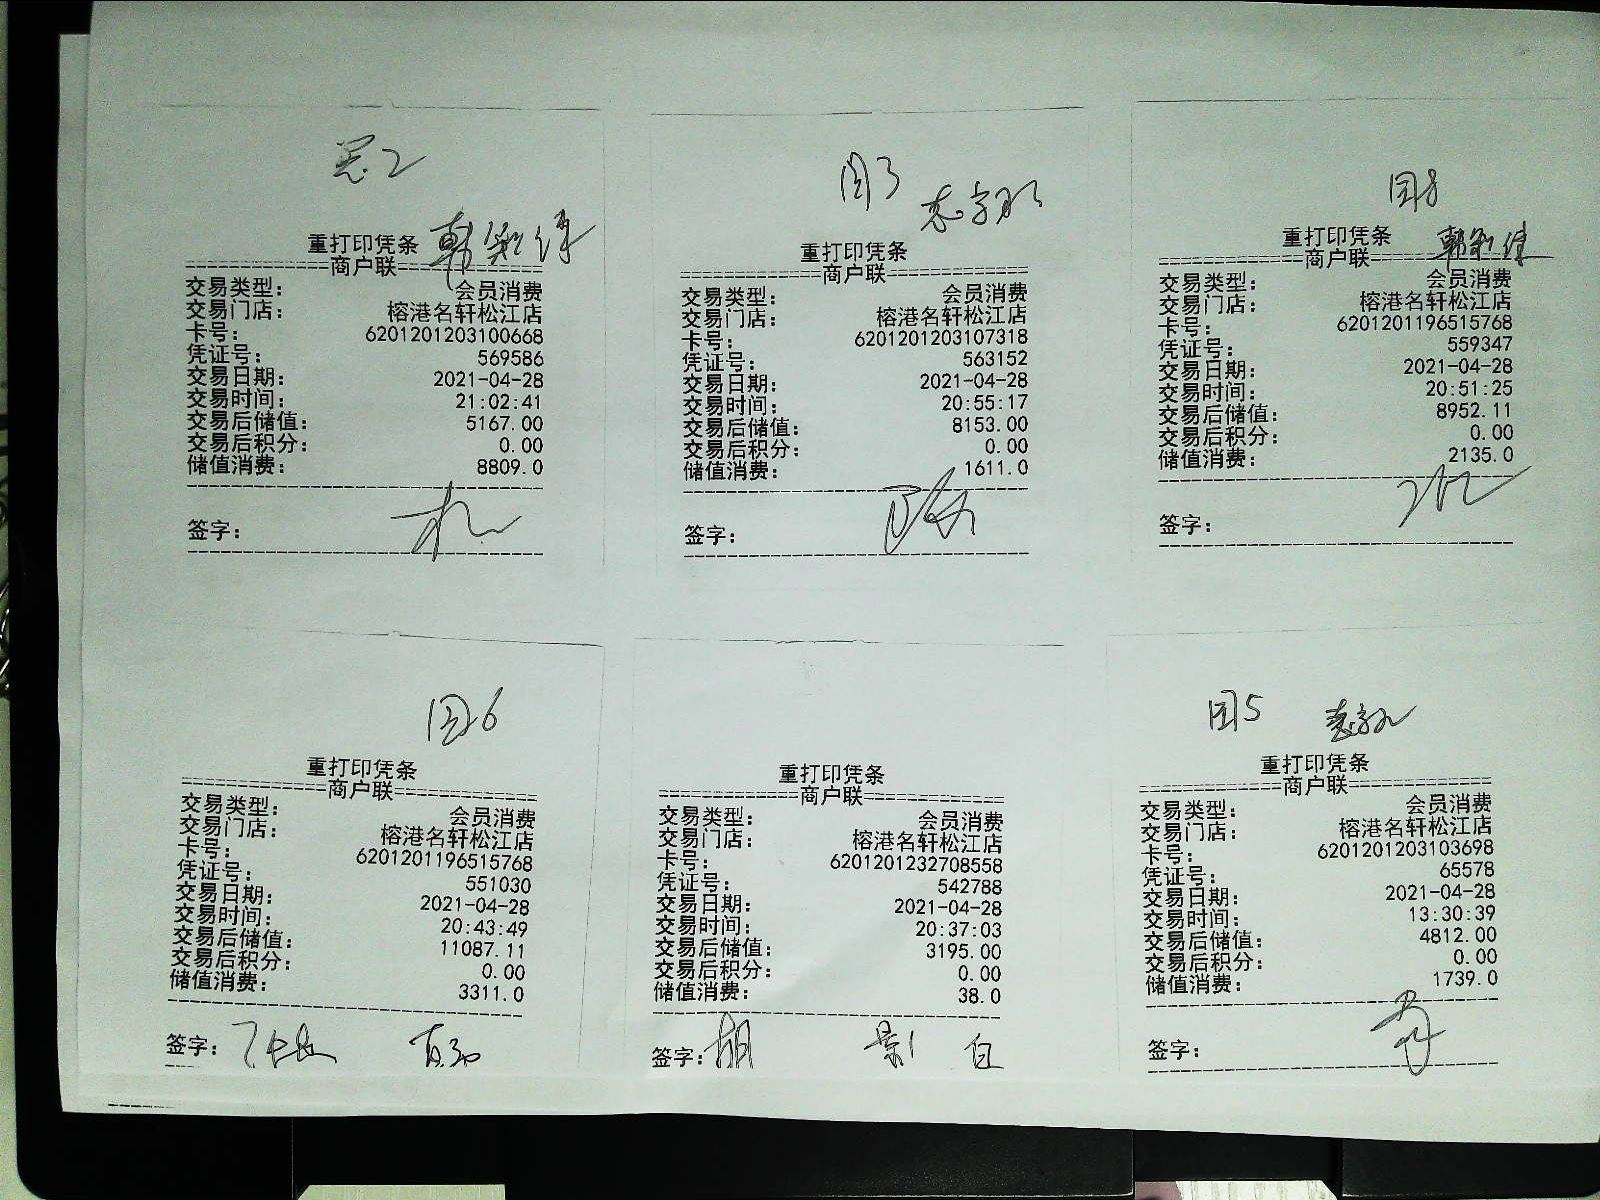 重打印凭条
商户联
交易类型: 会员消费
交易门店: 榕港名轩松江店
卡号: 6201201203100668
凭证号: 569586
交易日期: 2021-04-28
交易时间: 21:02:41
交易后储值: 5167.00
交易后积分: 0.00
储值消费: 8809.0
签字:
图3
重打印凭条
商户联
交易类型: 会员消费
交易门店: 榕港名轩松江店
卡号: 6201201203107318
凭证号: 563152
交易日期: 2021-04-28
交易时间: 20:55:17
交易后储值: 8153.00
交易后积分: 0.00
储值消费: 1611.0
签字:
图8
重打印凭条
商户联
交易类型: 会员消费
交易门店: 榕港名轩松江店
卡号: 6201201196515768
凭证号: 559347
交易日期: 2021-04-28
交易时间: 20:51:25
交易后储值: 8952.11
交易后积分: 0.00
储值消费: 2135.0
签字:
图6
重打印凭条
商户联
交易类型: 会员消费
交易门店: 榕港名轩松江店
卡号: 6201201196515768
凭证号: 551030
交易日期: 2021-04-28
交易时间: 20:43:49
交易后储值: 11087.11
交易后积分: 0.00
储值消费: 3311.0
签字:
重打印凭条
商户联
交易类型: 会员消费
交易门店: 榕港名轩松江店
卡号: 6201201232708558
凭证号: 542788
交易日期: 2021-04-28
交易时间: 20:37:03
交易后储值: 3195.00
交易后积分: 0.00
储值消费: 38.0
签字: 胡
图5
重打印凭条
商户联
交易类型: 会员消费
交易门店: 榕港名轩松江店
卡号: 6201201203103698
凭证号: 65578
交易日期: 2021-04-28
交易时间: 13:30:39
交易后储值: 4812.00
交易后积分: 0.00
储值消费: 1739.0
签字: